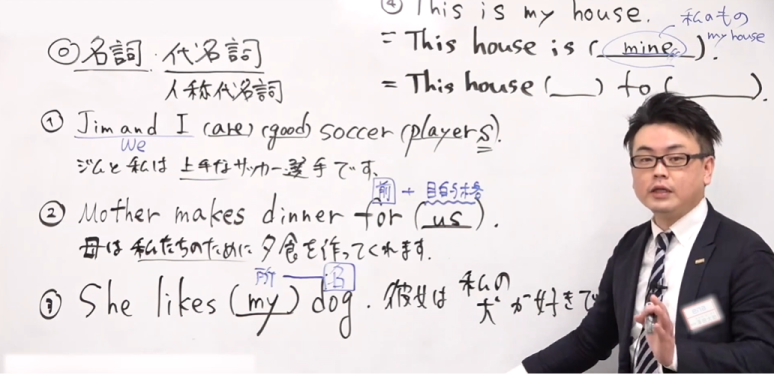 ◎ 名詞・代名詞
人称代名詞
① Jim and I (are) (good) soccer (players).
We
ジムと私は 上手なサッカー選手です。
前 + 目的格
② Mother makes dinner for (us).
母は 私たちのために 夕食を作ってくれます.
所 名
③ She likes (my) dog. 彼女は 私の犬が好きで
④ This is my house.
私のもの
my house
= This house is (mine).
= This house (   ) to (   ).